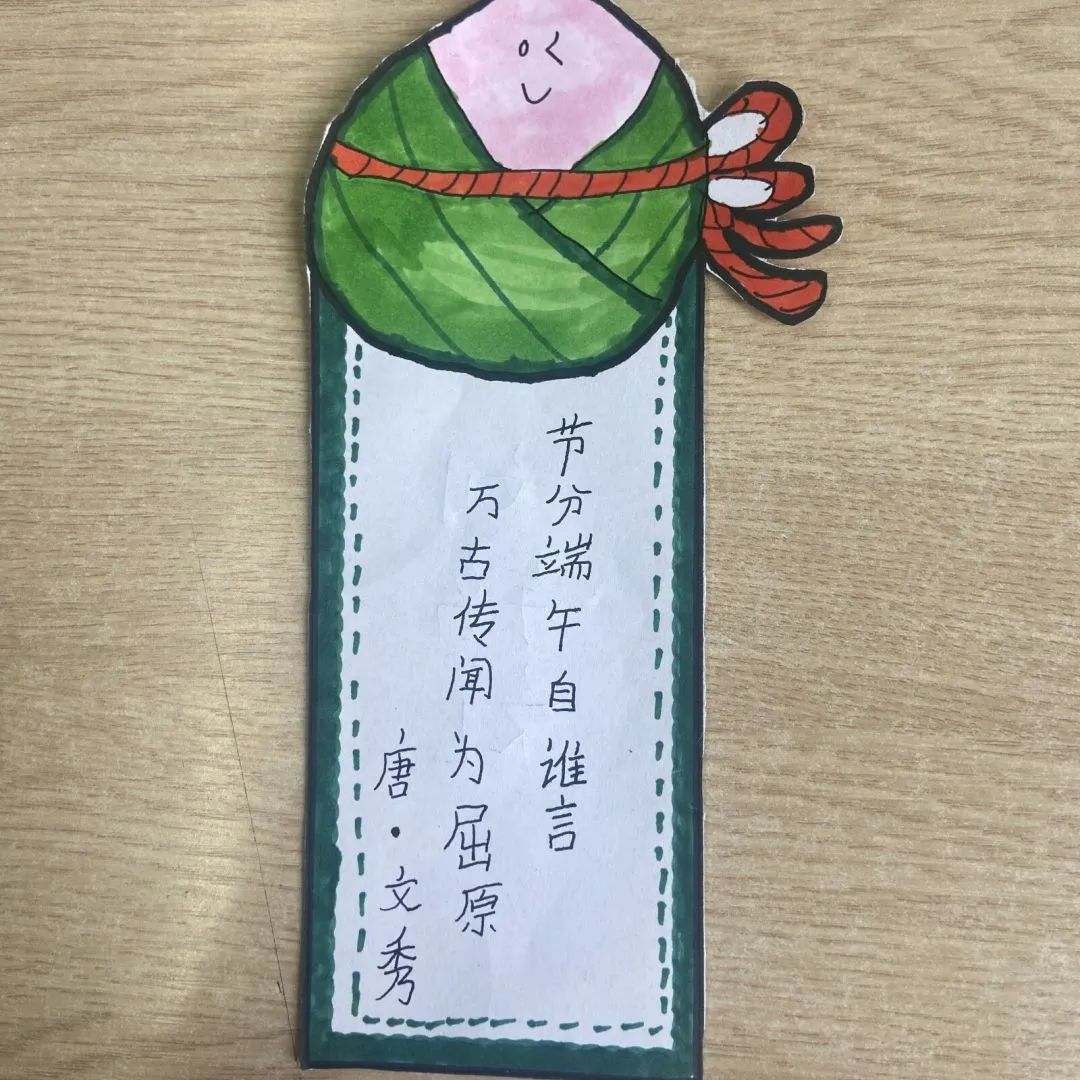 节分端午自谁言
万古传闻为屈原
唐·文秀